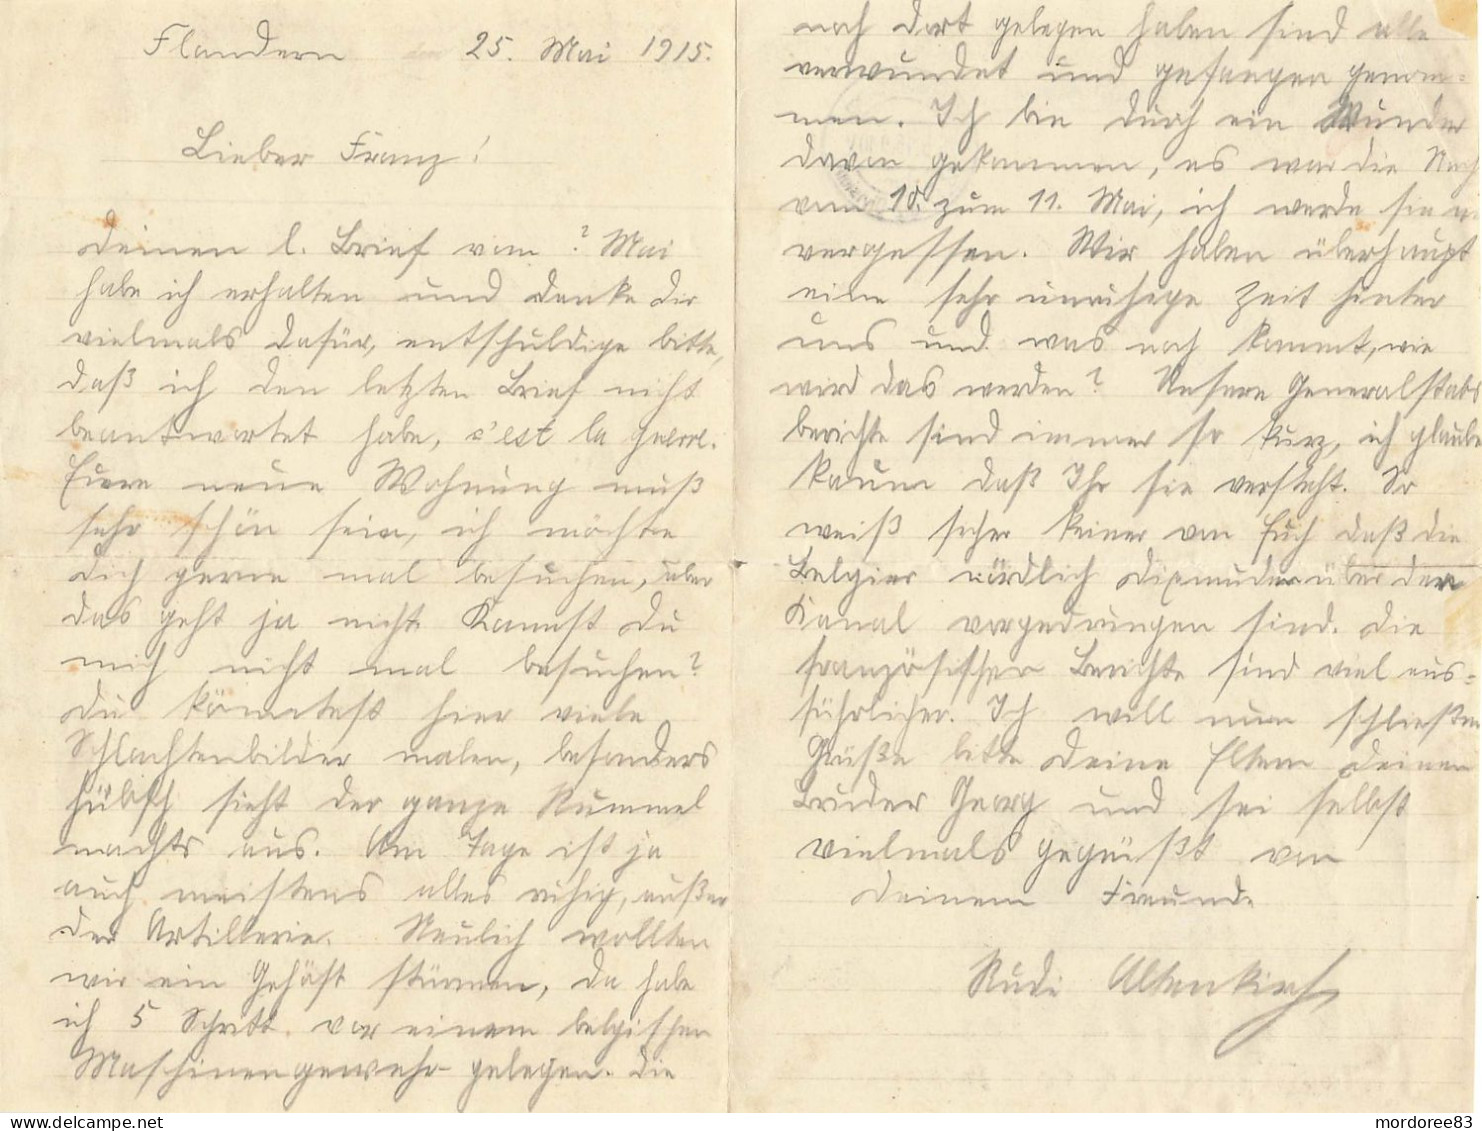 Flandern 25. Mai 1915.
Lieber Franz!
Deinen l. Brief vom ? Mai
habe ich erhalten und danke Dir
vielmals dafür, entschuldige bitte,
daß ich den letzten Brief nicht
beantwortet habe, c'est la guerre.
Eure neue Wohnung muß
sehr schön sein, ich möchte
Dich gerne mal besuchen, aber
das geht ja nicht. Kannst Du
mich nicht mal besuchen?
Du könntest hier viele
Schlachtenbilder malen, besonders
hübsch sieht der ganze Rummel
nachts aus. Am Tage ist ja
auch meistens alles ruhig, außer
der Artillerie. Neulich wollten
wir ein Gehöft stürmen, da habe
ich 5 Schritt vor einem belgischen
Maschinengewehr gelegen. Die
noch dort gelegen haben sind alle
verwundet und gefangen genom-
men. Ich bin durch ein Wunder
davon gekommen, es war die
vom 10. zum 11. Mai, ich werde sie
vergessen. Wir haben überhaupt
eine sehr unruhige Zeit hinter
uns und was noch kommt, wie
wird das werden? Unsere Generalstabs
berichte sind immer so kurz, ich glaube
kaum daß Ihr sie versteht. So
weiß sicher keiner von Euch daß die
Belgier nördlich Dixmuden über den
Kanal vorgedrungen sind. Die
französischen Berichte sind viel aus-
führlicher. Ich will nun schließen
Grüße bitte Deine Eltern Deinen
Bruder Georg und sei selbst
vielmals gegrüßt von
Deinem Freunde
Rudi Altenkirch
mordoree83